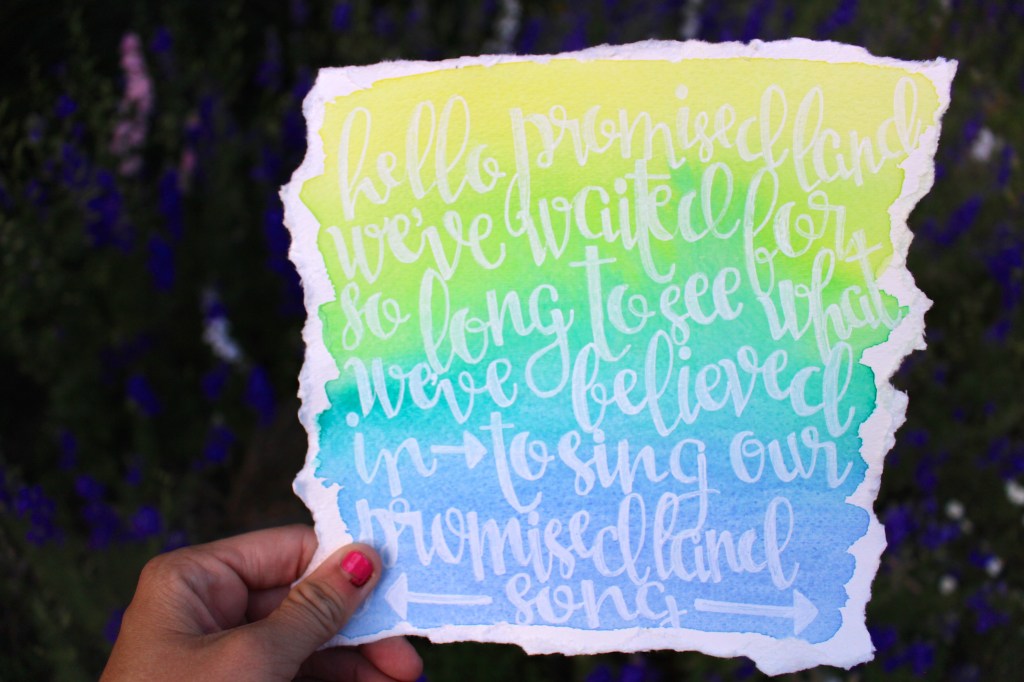 hello promised land
we've waited for
so long to see what
we've believed
in → to sing our
promised land
← song →